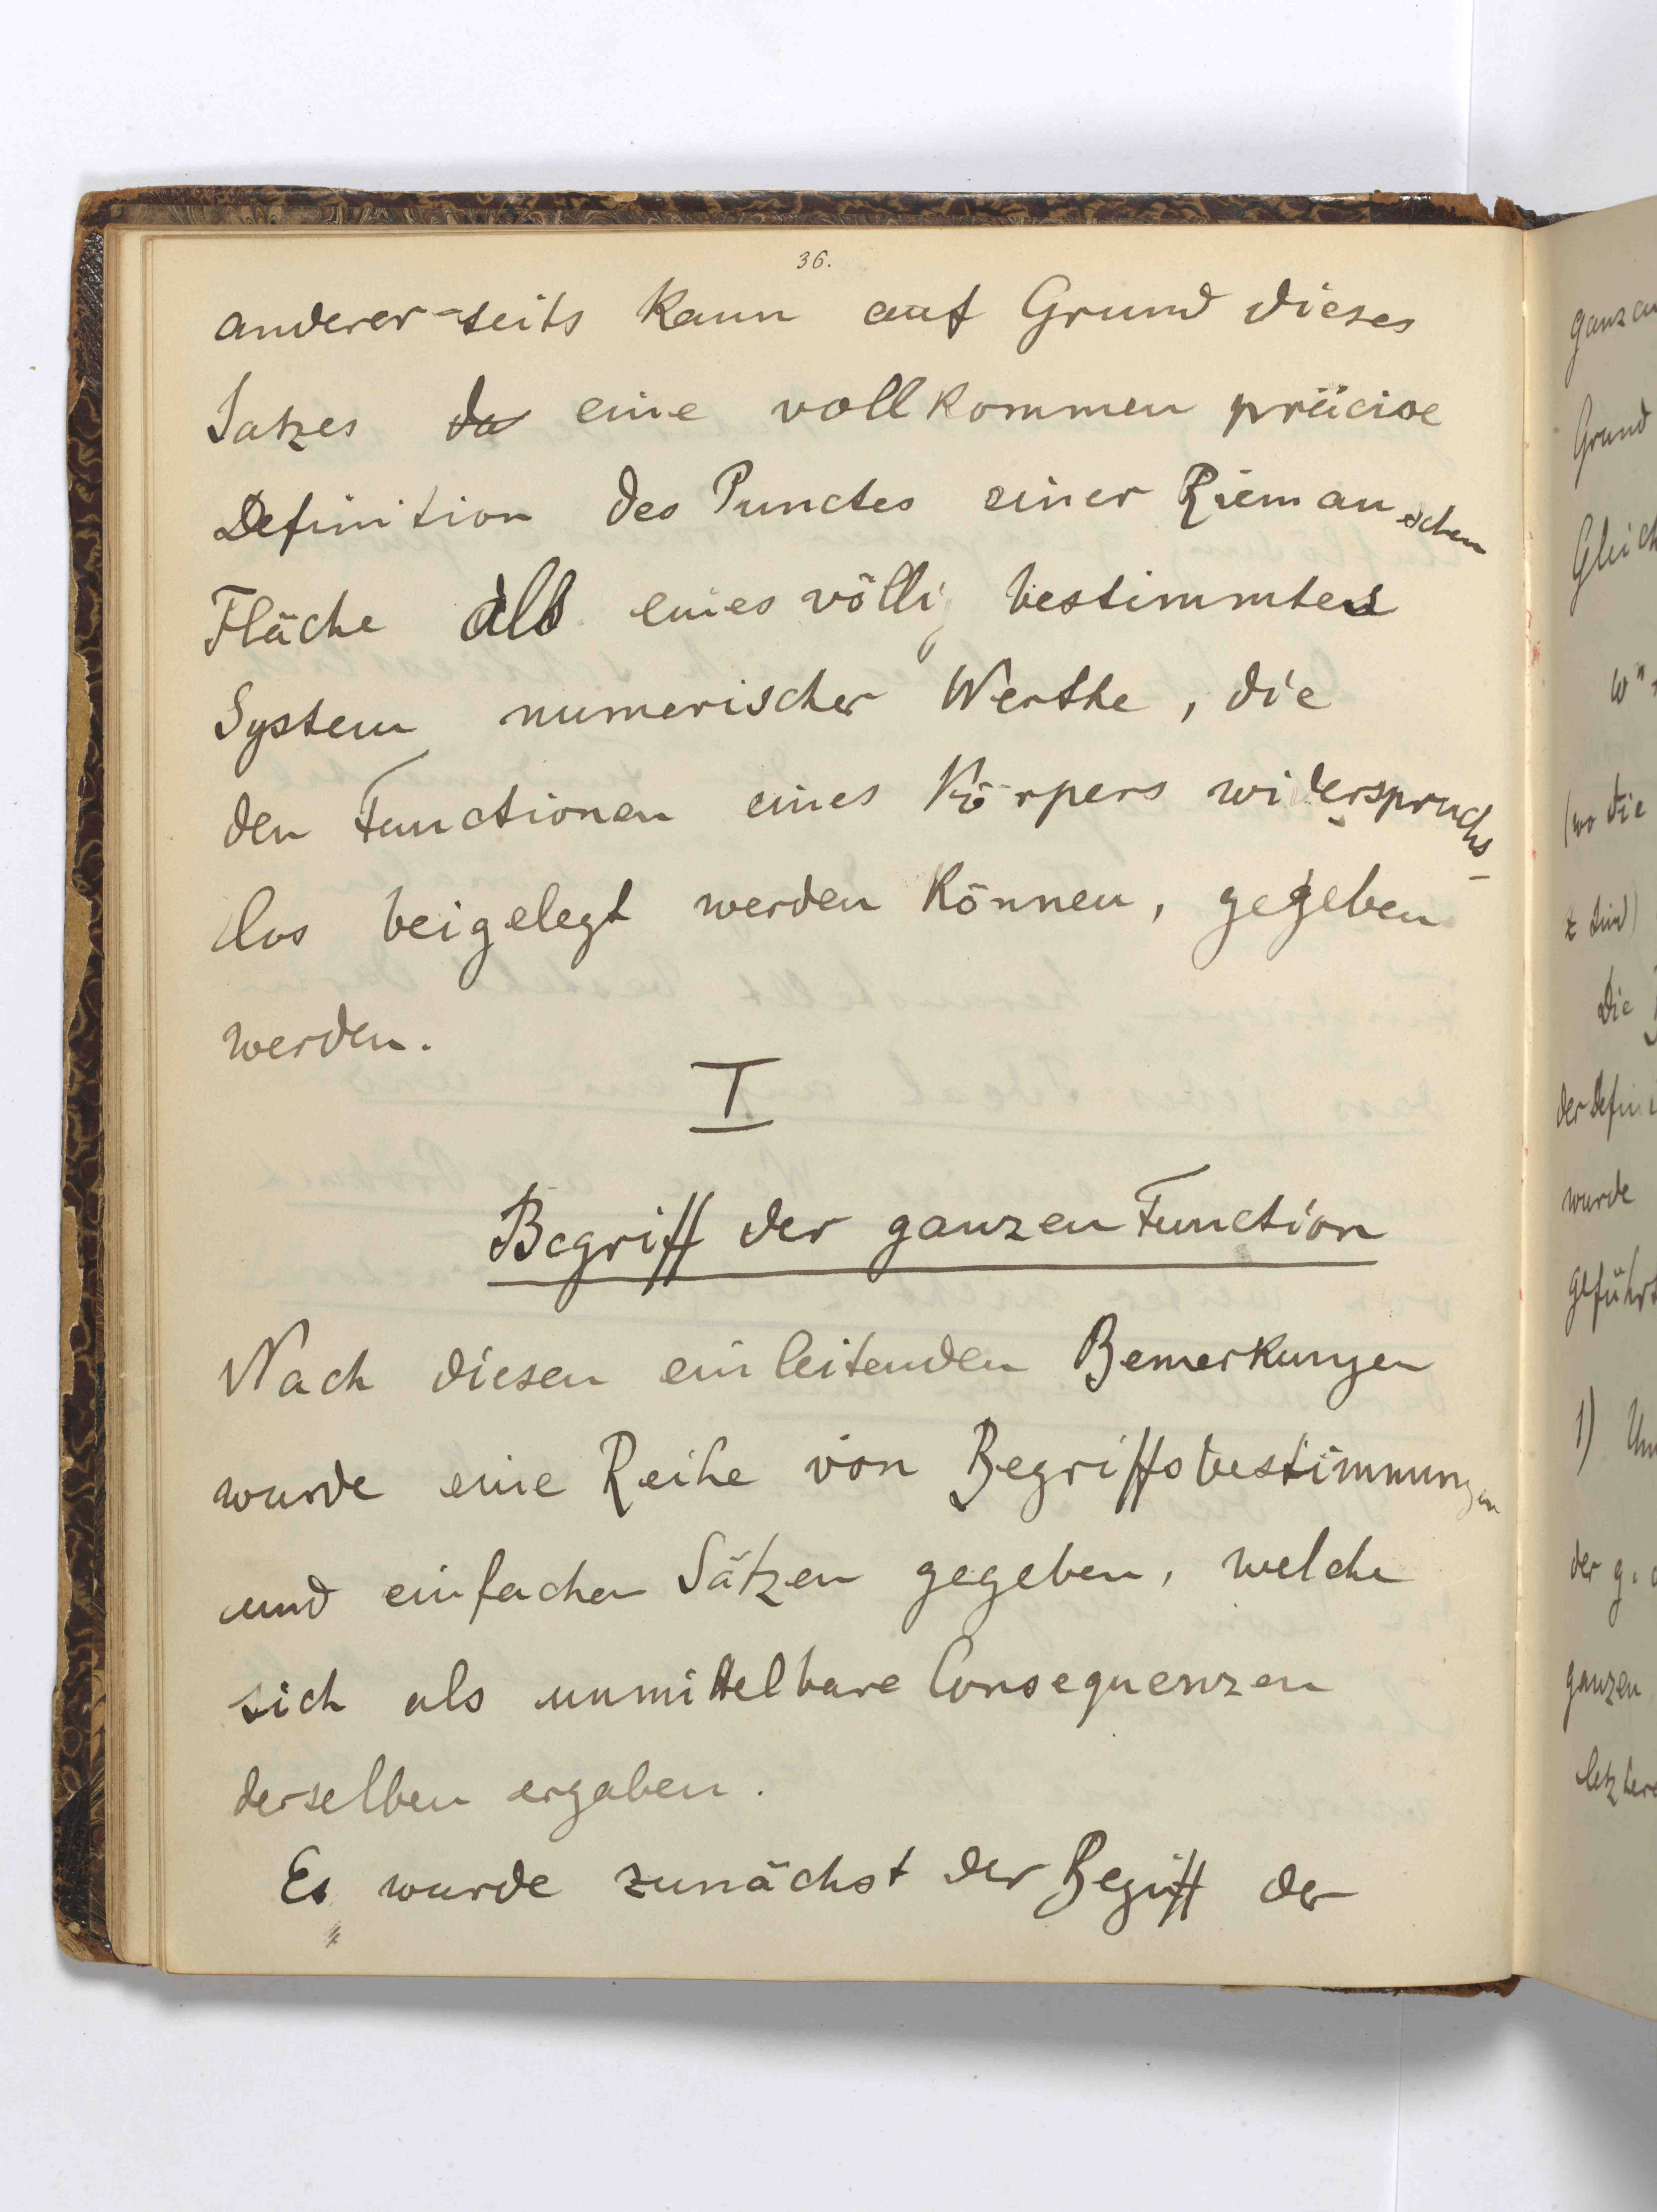 36.
anderer-seits kann auf Grund dieses
Satzes da eine vollkommen präcise
Definition des Punctes einer Riemanschen
Fläche als eines völlig bestimmten
System numerischer Werthe, die
den Functionen eines Körpers widerspruchs-
los beigelegt werden können, gegeben
werden.
I
Begriff der ganzen Function
Nach diesen einleitenden Bemerkungen
wurde eine Reihe von Begriffsbestimmungen
und einfachen Sätzen gegeben, welche
sich als unmittelbare Consequenzen
derselben ergaben.
Es wurde zunächst der Begriff der
Grund
(wo die
z sind)
Die
wurde
1)
ganzen